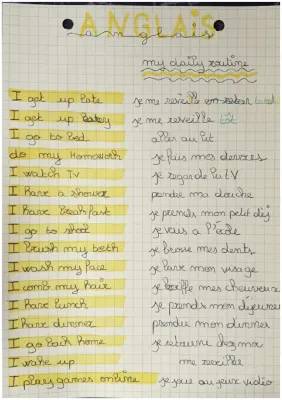 ANGLAIS
anglais
my daily routine
I get up late je me réveille en retard tard
I get up early je me réveille tôt
I go to bed aller au lit
do my homework je fais mes devoirs
I watch TV je regarde la TV
I have a shower prendre ma douche
I have breakfast je prends mon petit déj
I go to shool je vais a l'école
I brush my teeth je brosse mes dents
I wash my face je lave mon visage
I comb my hair je coiffe mes cheveux
I have lunch je prends mon déjeuner
I have dinner prendre mon dinner
I go back home je retourne chez moi
I wake up me reveiller
I play games online je joue au jeux vidéo